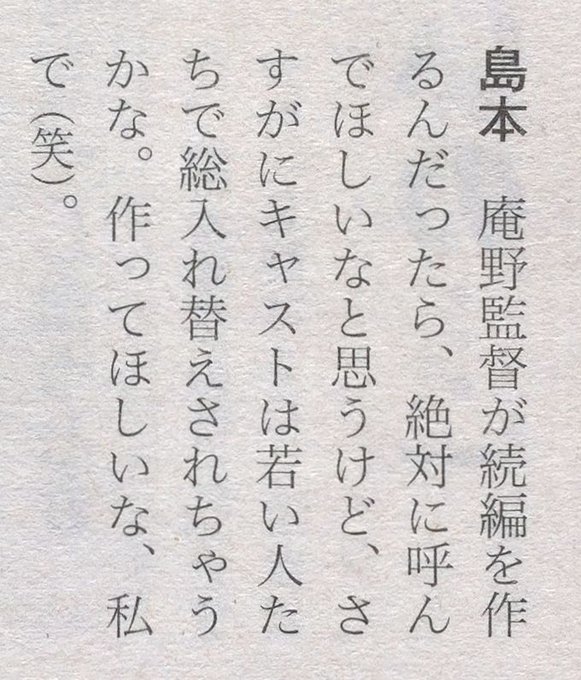 島本　庵野監督が続編を作
るんだったら、絶対に呼ん
でほしいなと思うけど、さ
すがにキャストは若い人た
ちで総入れ替えされちゃう
かな。作ってほしいな、私
で（笑）。